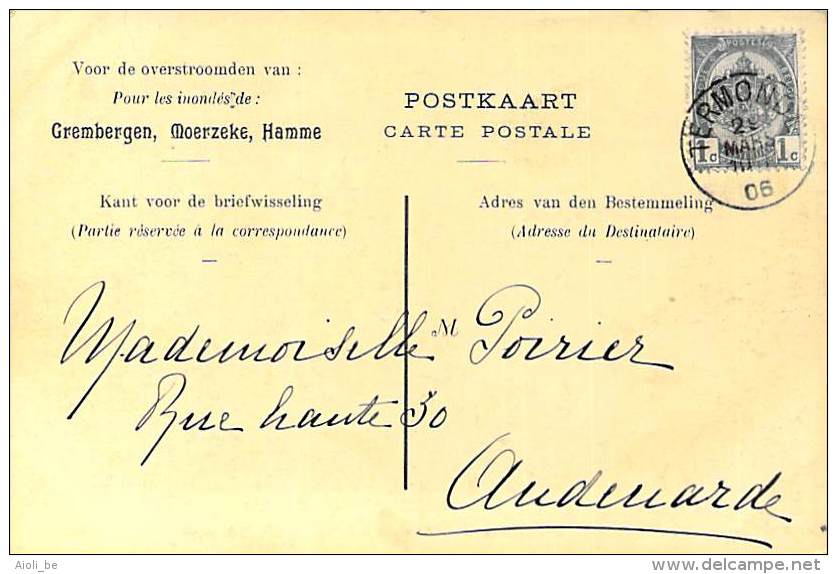 Voor de overstroomden van :
Pour les inondés de :
Grembergen, Moerzeke, Hamme
POSTKAART
CARTE POSTALE
POSTES
1c 1c
TERMONDE
MARS
06
Kant voor de briefwisseling
(Partie réservée à la correspondance)
Adres van den Bestemmeling
(Adresse du Destinataire)
M
Mademoiselle Poirier
Rue haute 30
Audenarde
Aioli_be
delcampe.net